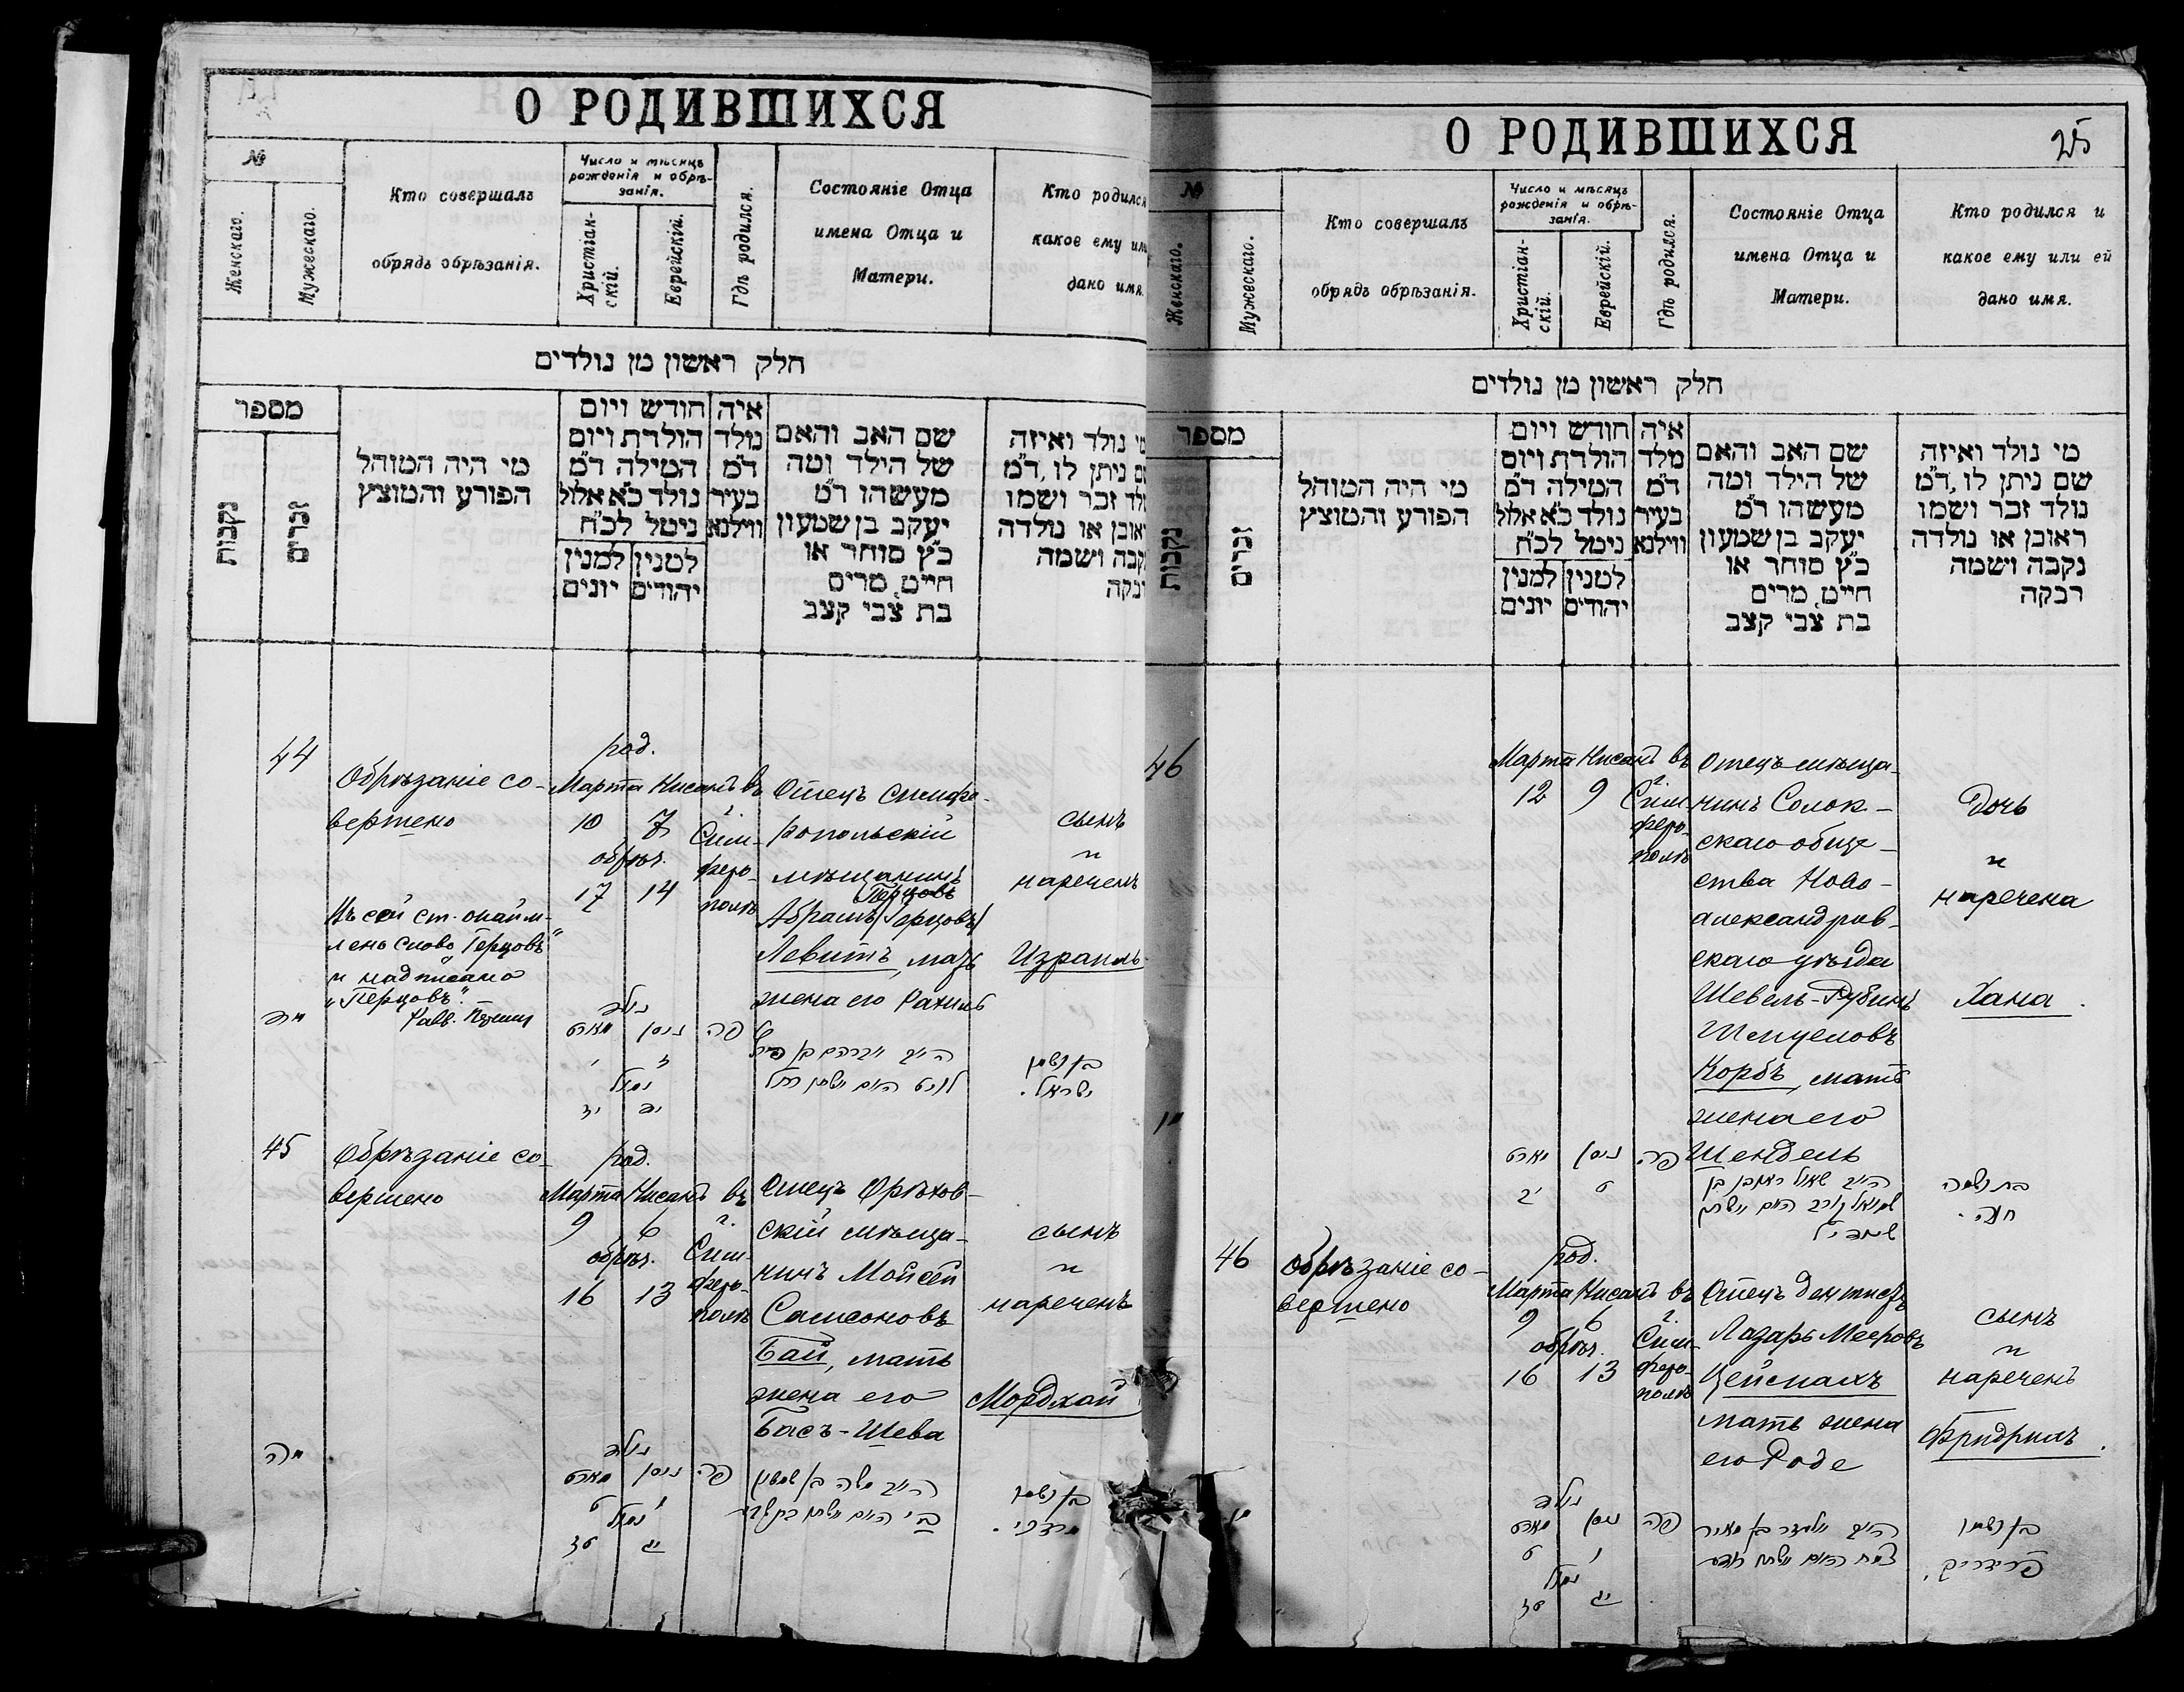 О РОДИВШИХСЯ
№
Женскаго.
Мужескаго.
Кто совершалъ
обрядъ обрѣзанія.
Число и мѣсяцъ
рожденія и обрѣ-
занія.
Христіан-
скій.
Еврейскій.
Гдѣ родился.
Состояніе Отца
имена Отца и
Матери.
Кто родился
какое ему или
дано имя.
חלק ראשון מן נולדים
מספר
נקבות
זכרים
מי היה המוהל
הפורע והמוצץ
חודש ויום
הולדת ויום
המילה ד״מ
נולד כ״א אלול
נימל לכ״ח
למנין
יהודים
למנין
יונים
איה
נולד
ד״מ
בעיר
ווילנא
שם האב והאם
של הילד ומה
מעשהו ד״מ
יעקב בן שמעון
כ״ץ סוחר או
חייט, מרים
בת צבי קצב
נולד ואיזה
ניתן לו, ד״מ
זכר ושמו
או נולדה
ושמה
44
Обрѣзаніе со-
вершено
Къ сей ст. окайм-
лено слово „Герцовъ"
и надписано
„Перцовъ".
Равв.
род.
Марта Нисанъ
10 7
обрѣз.
17 14
въ
г.
Сим-
феро-
полѣ
Отецъ Симфе-
ропольскій
мѣщанинъ
Перцовъ
Абрамъ (Герцовъ)
Левитъ, мать
жена его Рахиль
сынъ
и
нареченъ
Израиль
מד
נולד
מארט ניסן פה
י ז
נמול
יז יד
בן ושמו
ישראל.
45
Обрѣзаніе со-
вершено
род.
Марта Нисанъ
9 6
обрѣз.
16 13
въ
г.
Сим-
феро-
полѣ
Отецъ Орѣхов-
скій мѣща-
нинъ Мойсей
Самсоновъ
Бай, мать
жена его
Басъ-Шева
сынъ
и
нареченъ
Мордхай
מה
נולד
מארט ניסן פה
ט ו
נמול
טז יג
האב משה בן שמשון
בן ושמו
מרדכי.
О РОДИВШИХСЯ
25
№
Женскаго.
Мужескаго.
Кто совершалъ
обрядъ обрѣзанія.
Число и мѣсяцъ
рожденія и обрѣ-
занія.
Христіан-
скій.
Еврейскій.
Гдѣ родился.
Состояніе Отца
имена Отца и
Матери.
Кто родился и
какое ему или ей
дано имя.
חלק ראשון מן נולדים
מספר
נקבות
זכרים
מי היה המוהל
הפורע והמוצץ
חודש ויום
הולדת ויום
המילה ד״מ
נולד כ״א אלול
נימל לכ״ח
למנין
יהודים
למנין
יונים
איה
נולד
ד״מ
בעיר
ווילנא
שם האב והאם
של הילד ומה
מעשהו ד״מ
יעקב בן שמעון
כ״ץ סוחר או
חייט, מרים
בת צבי קצב
מי נולד ואיזה
שם ניתן לו, ד״מ
נולד זכר ושמו
ראובן או נולדה
נקבה ושמה
רבקה
46
Марта Нисанъ
12 9
въ
г.
Сим-
феро-
полѣ
Отецъ мѣща-
нинъ Солок-
скаго обще-
ства Ново-
александров-
скаго уѣзда
Шевель-Рубинъ
Шмуеловъ
Корбъ, мать
жена его
Шендель
Дочь
и
наречена
Хана.
מארט ניסן פה
יב ט
בת ושמה
חנה.
46
Обрѣзаніе со-
вершено
род.
Марта Нисанъ
9 6
обрѣз.
16 13
въ
г.
Сим-
феро-
полѣ
Отецъ дантистъ
Лазарь Мееровъ
Цейсмахъ
мать жена
его Роде
сынъ
и
нареченъ
Фридрихъ.
נולד
מארט ניסן פה
ט ו
נמול
טז יג
בן ושמו
פרידריך.